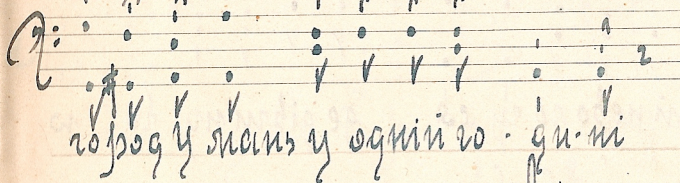 город Умань у одній го-ди-ні